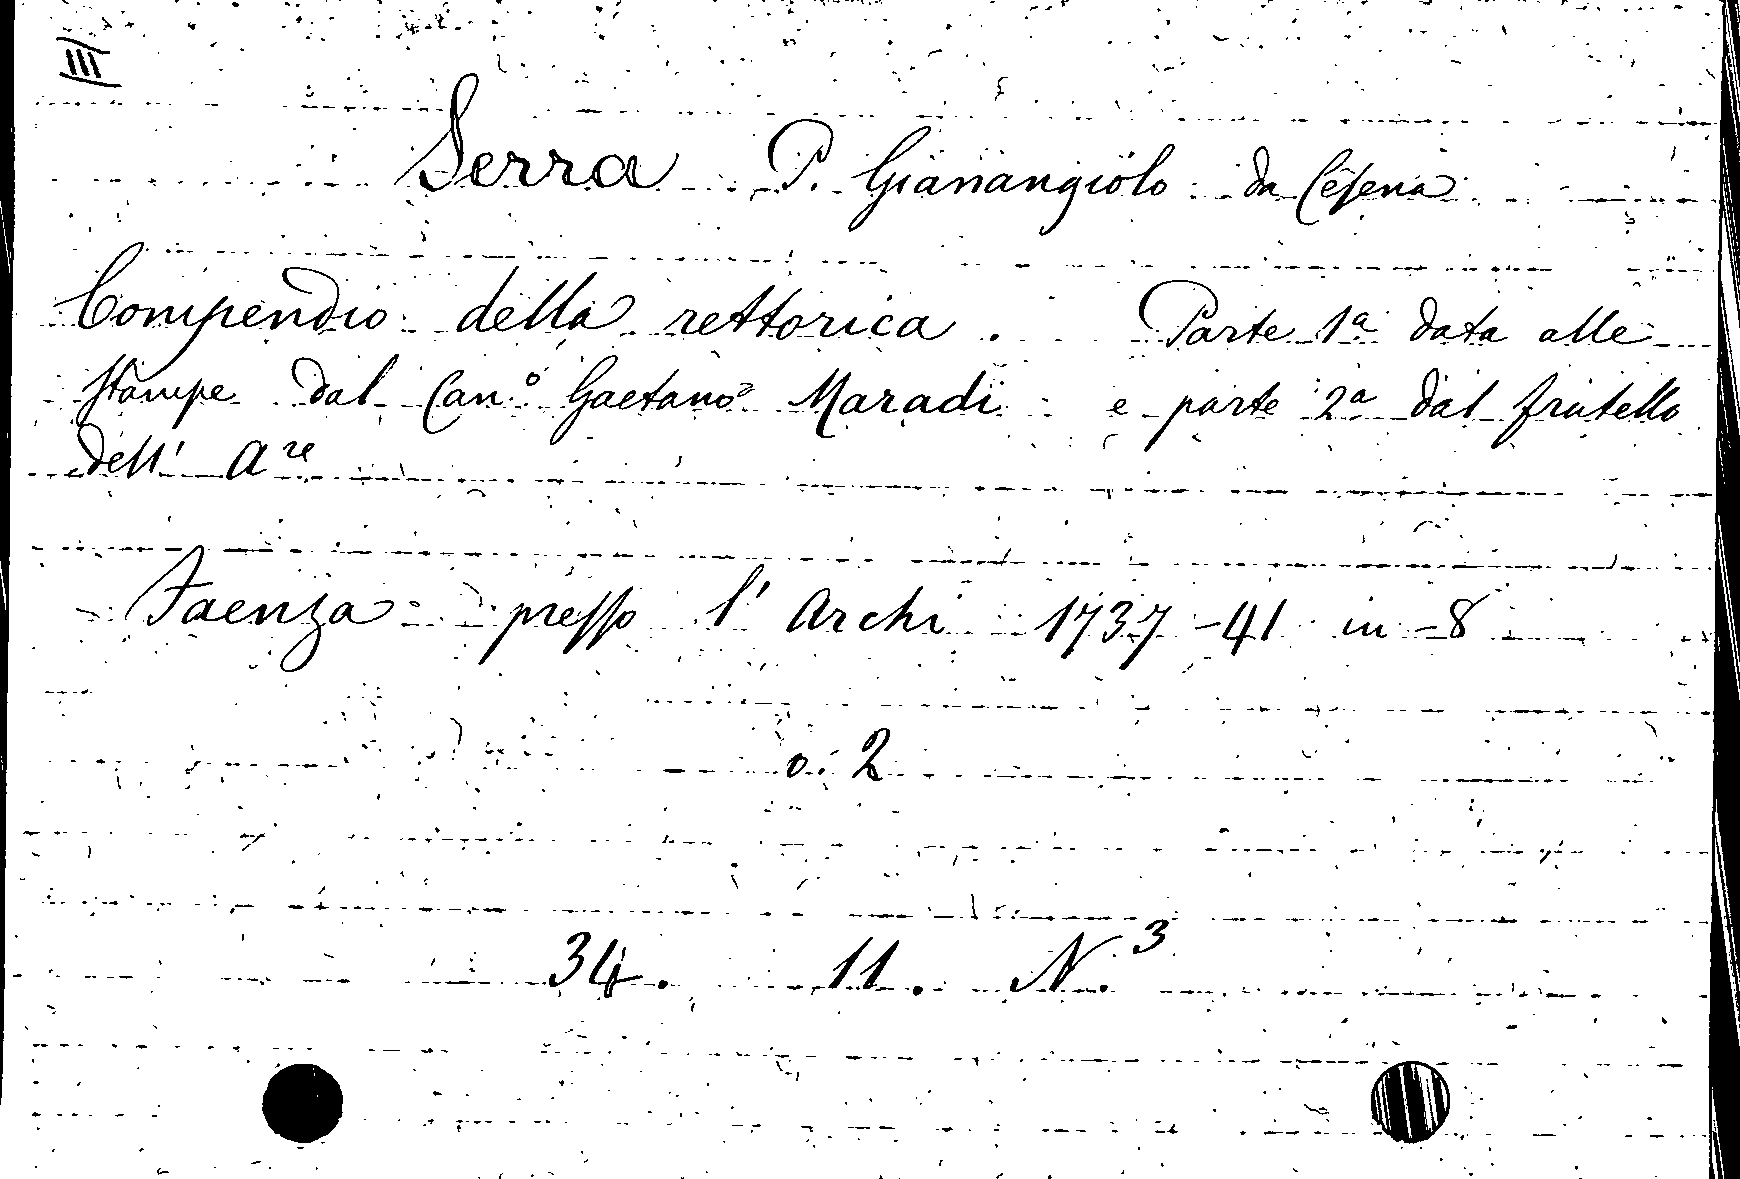 III
Serra P. Gianangiolo da Cesena
Compendio della rettorica. Parte 1ª data alle
stampe dal Can.º Gaetano Maradi e parte 2ª dal fratello
dell' Are
Faenza presso l'Archi 1737-41 in-8
v. 2
34. 11. N. 3